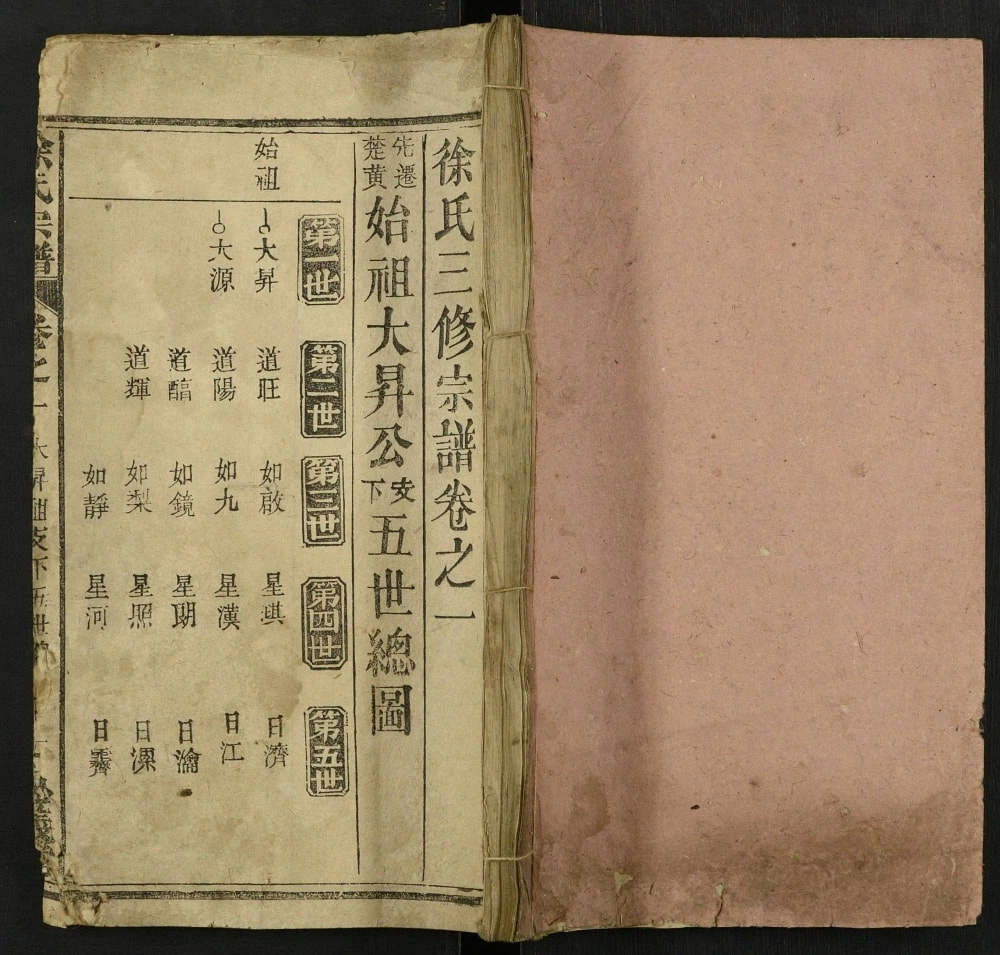 徐氏三修宗譜卷之一
先遷楚黃始祖大昇公支下五世總圖
始祖
第一世
大昇
大源
第二世
道旺
道陽
道醕
道輝
第三世
如啟
如九
如鏡
如梨
如靜
第四世
星琪
星漢
星朗
星照
星河
第五世
日濟
日江
日瀹
日漯
日霽
徐氏宗譜
卷之一
大昇祖支下五世